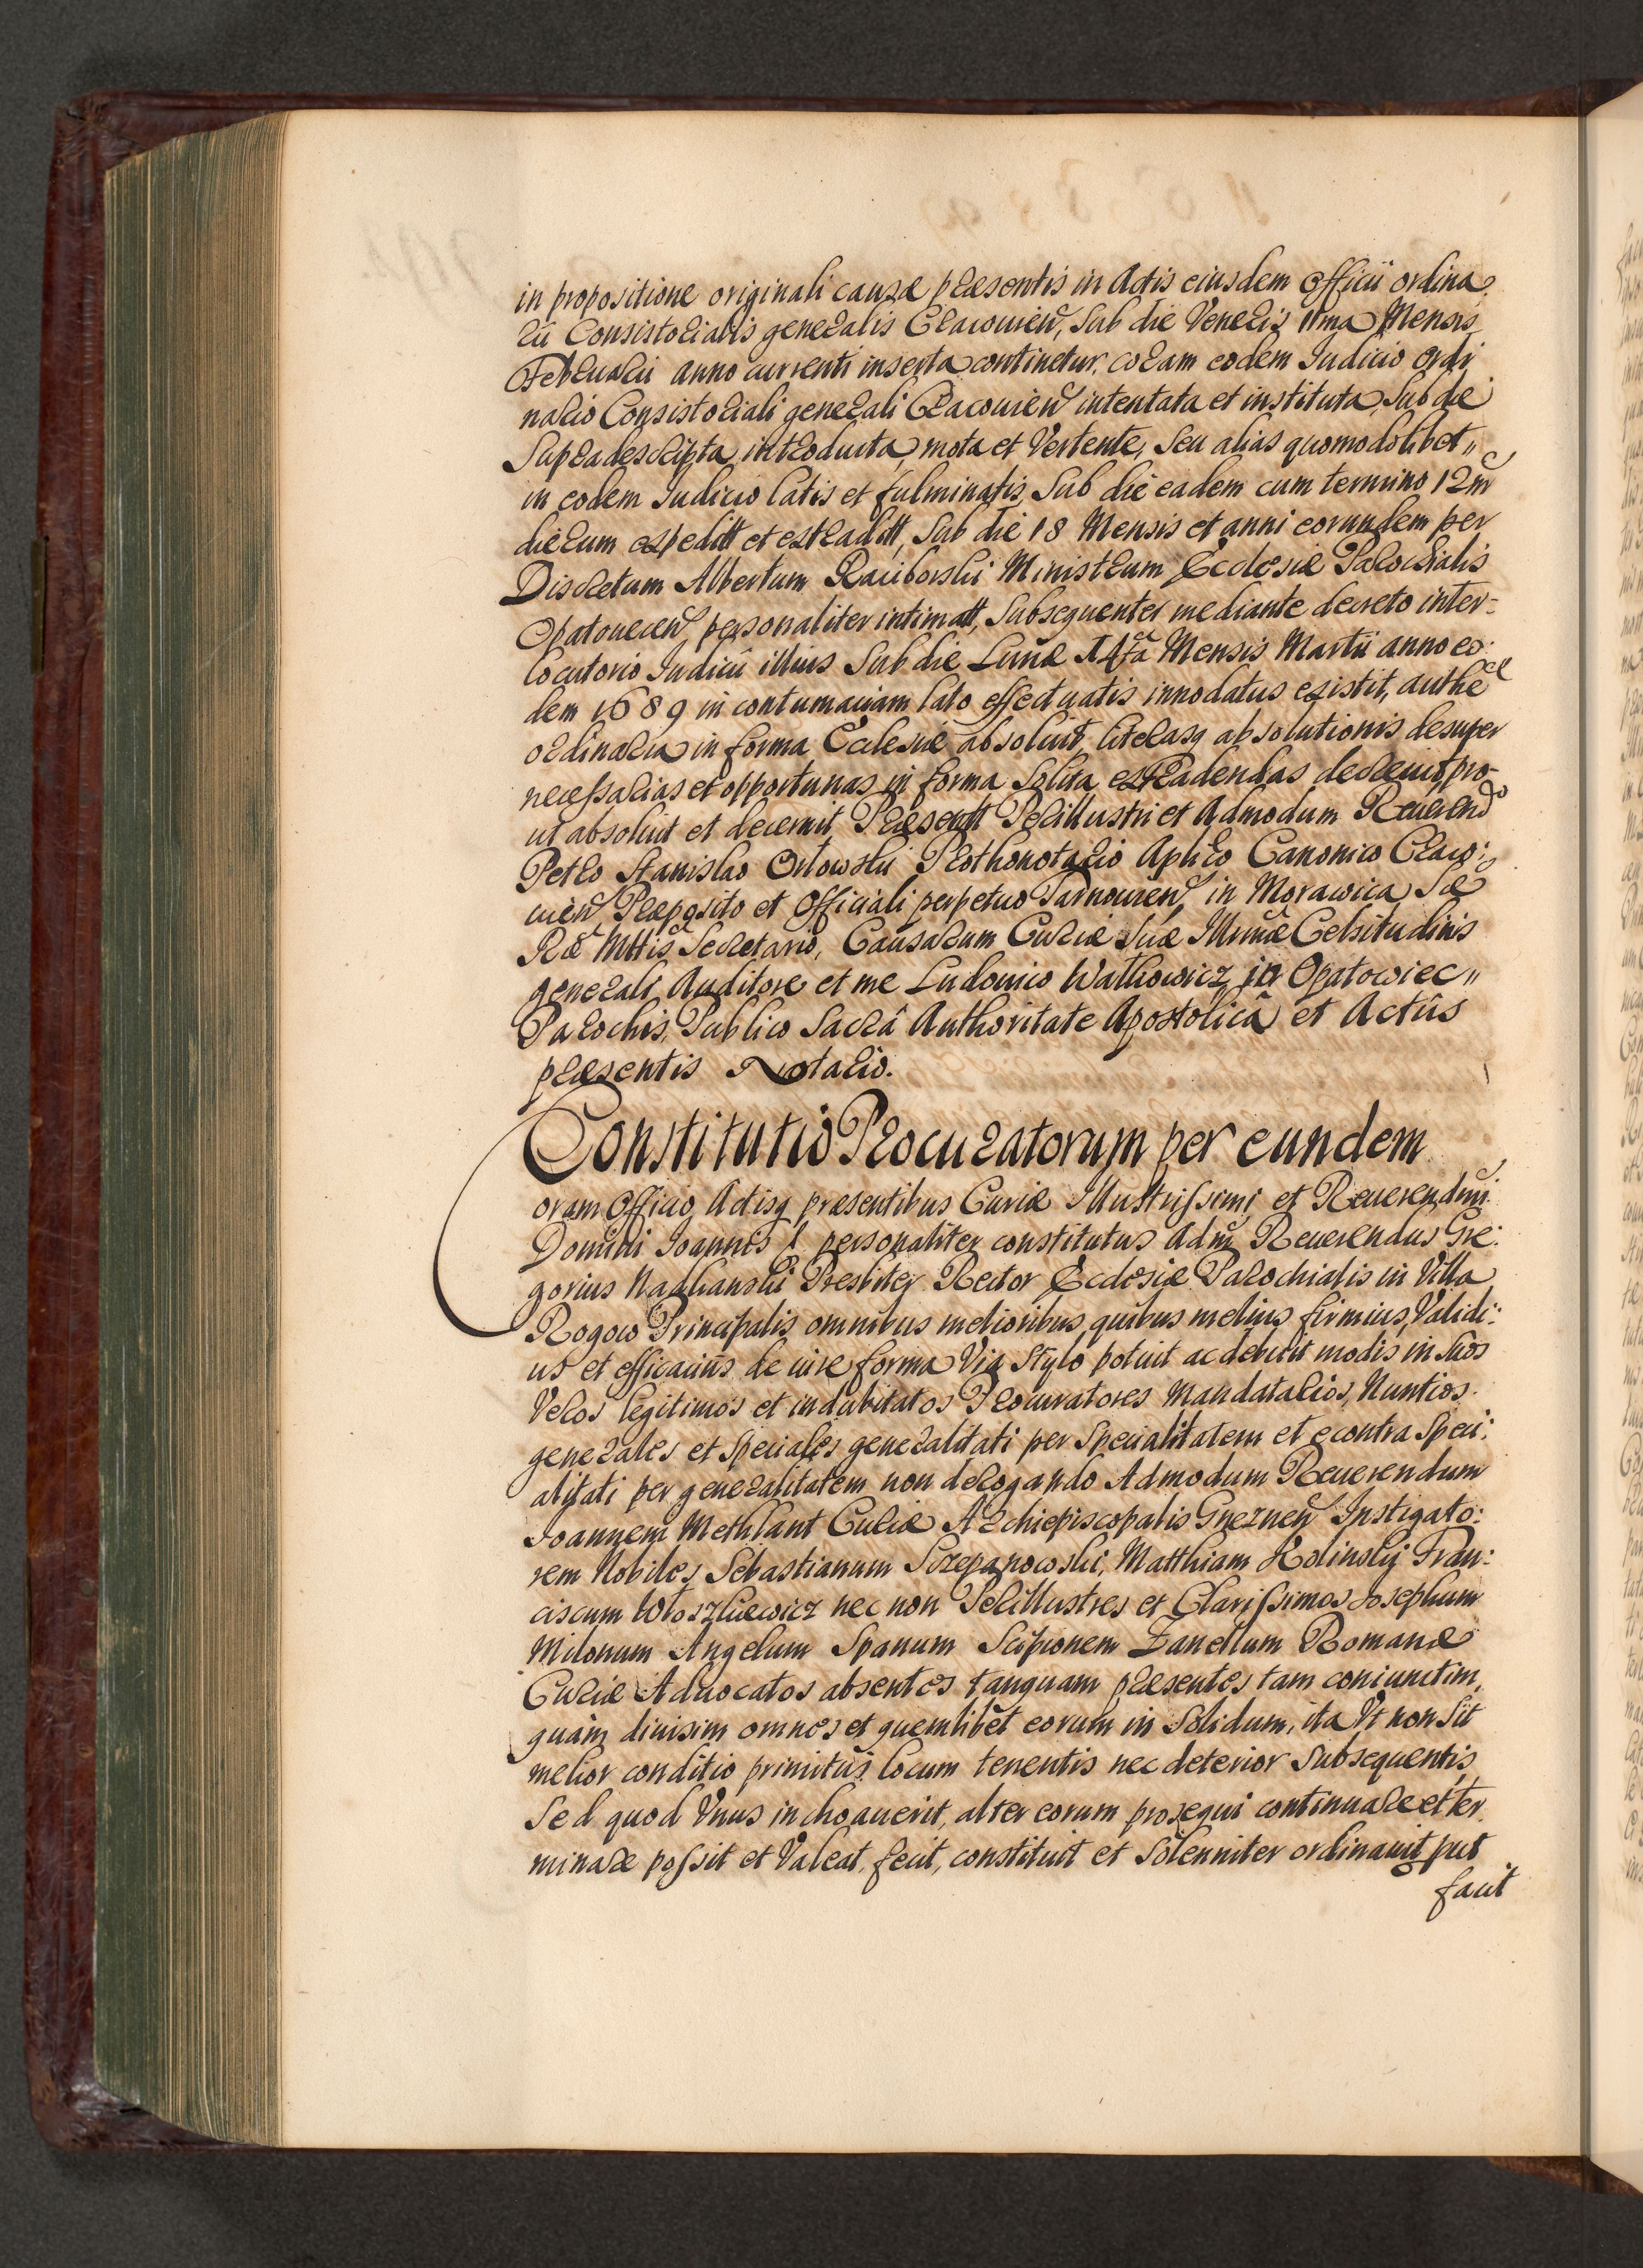 in propositione originali causæ præsentis in Actis eiusdem Officii ordina
rii Consistorialis generalis Cracouien, Sub die Veneris 11ma Mensis
Februarii anno currenti inserta continetur, coram eodem Iudicio ordi
nario Consistoriali generali Cracouien intentata et instituta, Sub die
Supradescripta introducta, mota et Vertente, Seu alias quomodolibet„
in eodem Iudicio latis et fulminatis, Sub die eadem cum termino 12m
dierum expeditt et extraditt, Sub die 18 Mensis et anni eorundem per
Discretum Albertum Raciborski Ministrum Ecclesiæ Parochialis
Opatouecen, personaliter intimatt, Subsequenter mediante decreto inter-
locutorio Iudicii illius Sub die Lunæ 14ta Mensis Martii anno eo:
dem 1689 in contumaciam lato effectuatis innodatus existit, authe
ordinaria in forma Ecclesiæ absoluit, literasq absolutionis desuper
necessarias et opportunas in forma Solita extradendas decreuit pro-
ut absoluit et decernit, Præsentt Perillustri et Admodum Reuerendo
Petro Stanislao Orłowski Prothonotario Aplico Canonico Craco:
uien Præposito et Officiali perpetuo Tarnouien, in Morawica Sæ
Ræ Mttis Secretario, Causarum Curiæ Suæ Illmæ Celsitudinis
generali Auditore et me Ludouico Wathowicz in Opatowiec„
Parochis, Publico Sacrâ Authoritate Apostolicâ et Actûs
præsentis Notario.
Constitutio Procuratorum per eundem
oram Officio, Actisq præsentibus Curiæ Illustrissimi et Reuerendmi
Domini Ioannis personaliter constitutus Adm Reuerendus Gre:
gorius Nadhanski Presbiter Rector Ecclesiæ Parochialis in Villa
Rogow Principalis omnibus melioribus, quibus melius, firmius, Validi:
us et efficacius de iure forma Via Stylo potuit ac debuit modis in Suos
Veros legitimos et indubitatos Procuratores Mandatarios, Nuntios
generales et Speciales generalitati per Specialitatem et econtra Speci:
alitati per generalitatem non derogando Admodum Reuerendum
Ioannem Methlant Curiæ Archiepiscopalis Gneznen Instigato:
rem Nobiles Sebastianum Szczepanowski, Matthiam Rolinskij Fran:
ciscum Włoszkiewicz nec non Perillustres et Clarissimos Iosephum
Milonum Angelum Spanum Scipionem Zanellum Romanæ
Curiæ Aduocatos absentes tanquam præsentes tam coniunctim,
quàm diuisim omnes et quemlibet eorum in Solidum, ita Vt non Sit
melior conditio primitus locum tenentis nec deterior Subsequentis,
Sed quod Vnus inchoauerit, alter eorum prosequi continuare et ter
minare possit et Valeat, fecit, constituit et Solenniter ordinauit put
facit